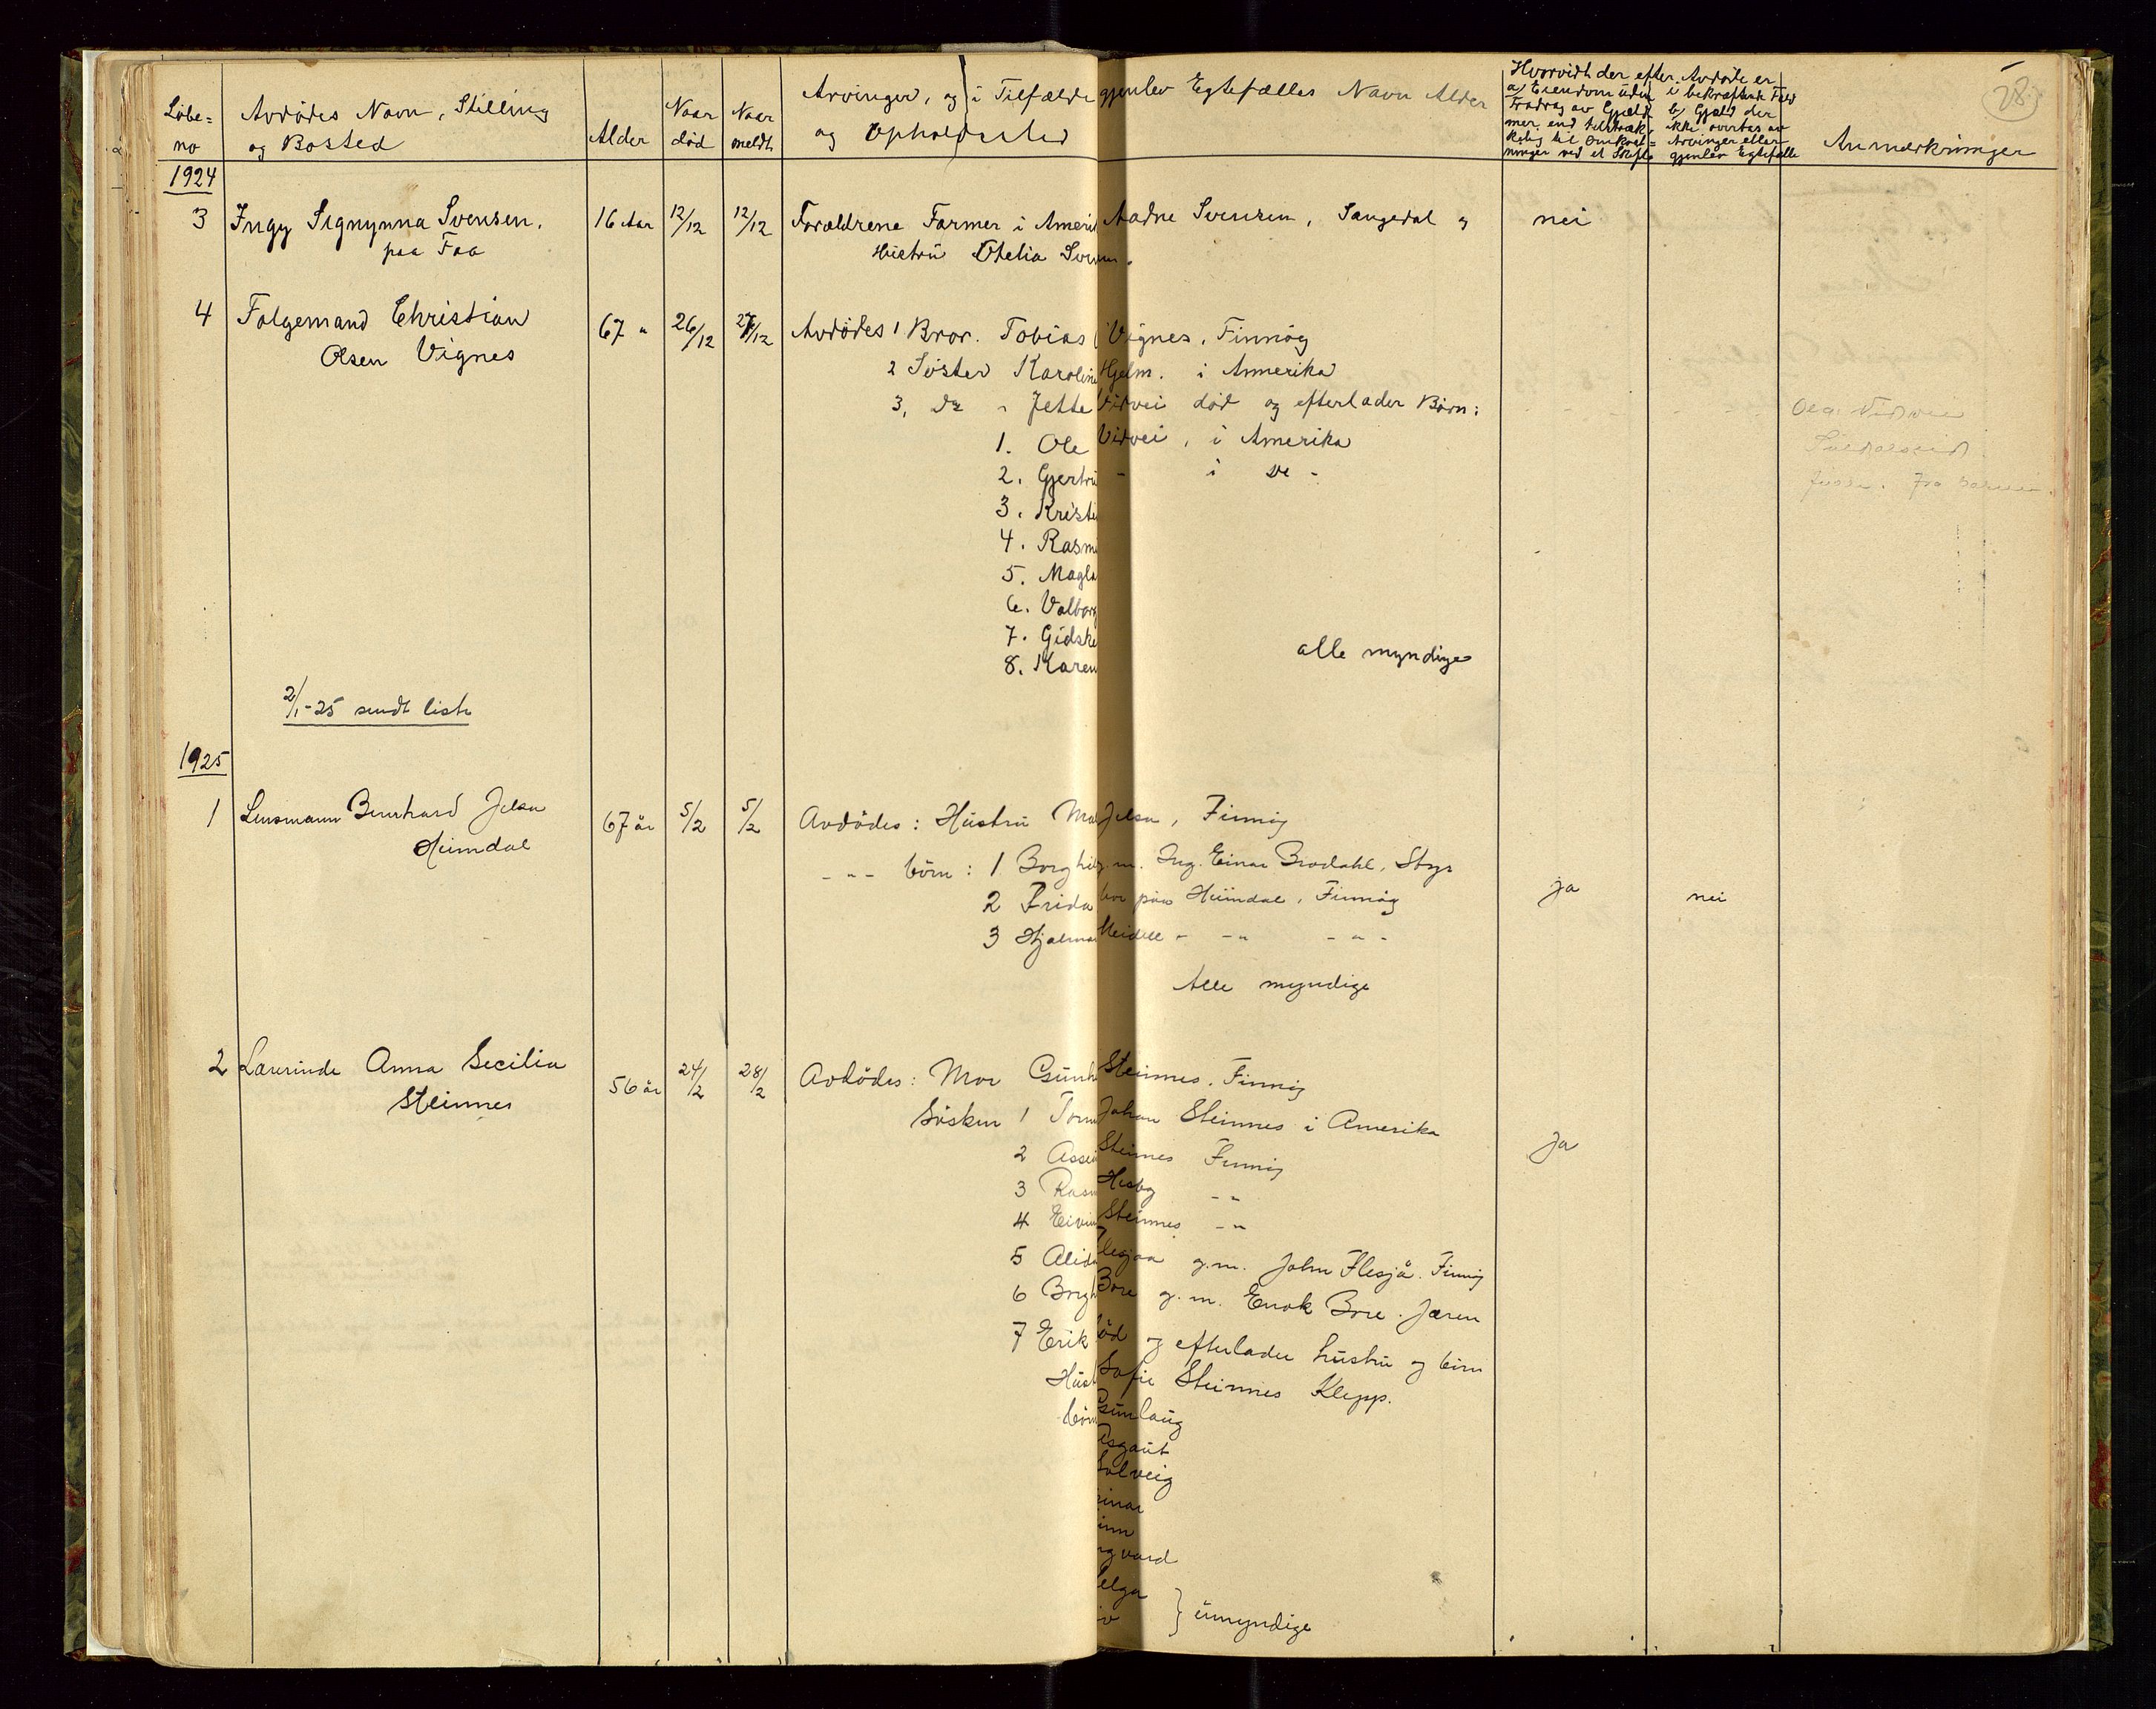 Löbe= no
Avdödes Navn, Stilling og Bosted
Alder
Naar död
Naar meldt
Arvinger, og i Tilfælde gjenlev Egtefælles Navn Alder
og Opholdssted
Hvorvidt der efter Avdöde er
a) Eiendom uden Fradrag av Gjæld mer end tilstræk= kelig til Omkost= ninger ved et Skifte
i bekræftende Fald b) Gjæld der ikke overtas av Arvinger eller gjenlev Egtefælle
Anmerkninger
28
1924
3 Ingy Signynna Svensen. 16 Aar 12/12 12/12 Forældrene Farmer i Ameri Aadne Svensen, Sangedal og nei
paa Faa
Hüstrü Othelia Sven
4 Folgemand Christian 67 " 26/12 27/12 Avdödes 1 Bror. Tobias Vignes, Finnöy
Olsen Vignes
2 Söster Karoline Hjelm. i Amerika
3, Do " Jette Vidvei död og efterlader Börn:
1. Ole Vidvei, i Amerika
2. Gjertrü - i Do -
3. Kristi
4. Rasm
5. Magla
6. Valborg
7. Gidske
8. Karen
alle myndige
Vidvei
2/1-25 sendt liste
1925
1 Lensmann Bernhard Jelsa 67 år 5/2 5/2 Avdödes: Hüstrü Ma Jelsa, Finnöy
Heimdal
- " - börn: 1 Borghil g.m. Ing. Einar Brodahl, Stgr
2 Frida bor paa Heimdal, Finnöy ja nei
3 Hjalmar Meidell - - " - " -
Alle myndige
2 Lærerinde Anna Secilia 56 år 24/2 28/2 Avdödes: Mor Günh Steinnes. Finnöy
Steinnes
Sösken 1 Torm Johan Steinnes i Amerika ja
2 Asse Steinnes Finnöy
3 Rasm Hesby - "
4 Eivin Steinnes - "
5 Alida Flesjaa g.m. John Flesjå. Finnöy
6 Borgh Bore g.m. Enok Bore. Jæren
7 Erik död og efterlader hüstrü og börn
Hüst Sofie Steinnes Klepp.
börn Günlaüg
Asgaüt
Solveig
einar
inn
ngvard
elga
iv } ümyndige